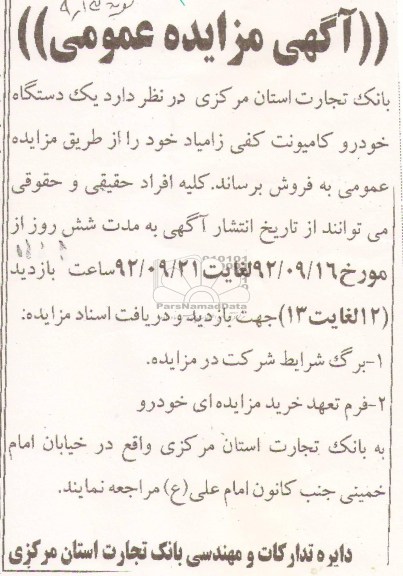 ((آگهی مزایده عمومی))
بانک تجارت استان مرکزی در نظر دارد یک دستگاه
خودرو کامیونت کفی زامیاد خود را از طریق مزایده
عمومی به فروش برساند.کلیه افراد حقیقی و حقوقی
می توانند از تاریخ انتشار آگهی به مدت شش روز از
مورخ ۹۲/۰۹/۱۶ لغایت ۹۲/۰۹/۲۱ ساعت بازدید
(۱۲ لغایت ۱۳) جهت بازدید و دریافت اسناد مزایده:
۱-برگ شرایط شرکت در مزایده.
۲-فرم تعهد خرید مزایده ای خودرو
به بانک تجارت استان مرکزی واقع در خیابان امام
خمینی جنب کانون امام علی(ع) مراجعه نمایند.
دایره تدارکات و مهندسی بانک تجارت استان مرکزی
ParsNamadData